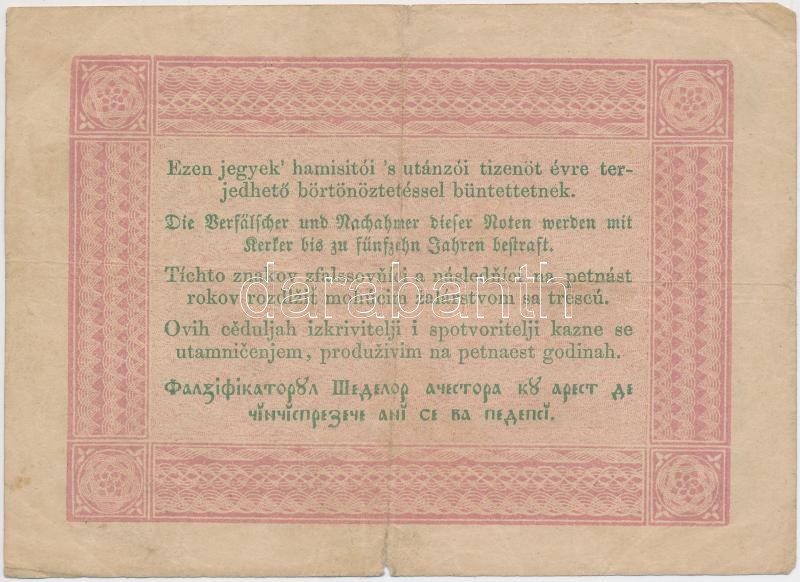 Ezen jegyek' hamisitói 's utánzói tizenöt évre ter-
jedhető börtönöztetéssel büntettetnek.
Die Verfälscher und Nachahmer dieser Noten werden mit
Kerker bis zu fünfzehn Jahren bestraft.
Tíchto znakov zfalssovňíci a následňíci na petnást
rokov rozdížiť mohúcim žalárstvom sa trescú.
darabanth
Ovih cĕduljah izkrivitelji i spotvoritelji kazne se
utamničenjem, produživim na petnaest godinah.
Фалзіфікаторꙋл Шеделор ачестора кꙋ арест де
чінчіспрезече ані се ва педепсі.